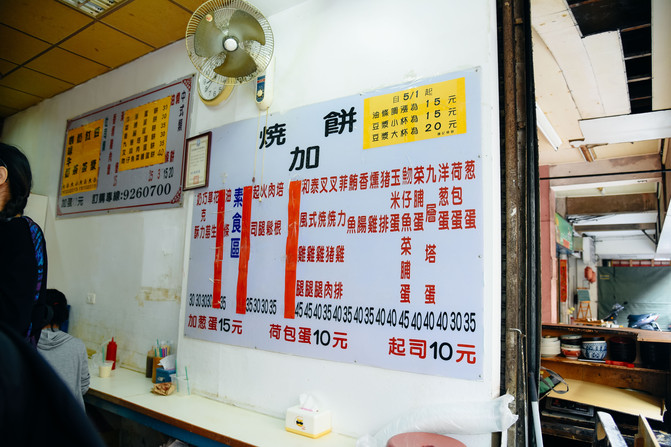 自5/1起
油條調漲為15元
豆漿小杯為15元
豆漿大杯為20元
燒餅
加
葱蛋 35
荷包蛋 30
洋葱蛋 40
九層塔蛋 40
菜脯蛋 40
魩仔魚菜脯蛋 45
玉米蛋 40
豬排蛋 40
燻雞 35
香腸 40
鮪魚 35
菲力雞排 40
叉燒豬肉 35
叉燒雞腿 40
泰式雞腿 45
和風雞腿 45
培根 30
肉鬆 35
火腿 30
起司 35
素食區
油條 35
花生 30
30
巧克力 30
奶酥 30
加葱蛋15元
荷包蛋10元
起司10元
訂購專線:9260700